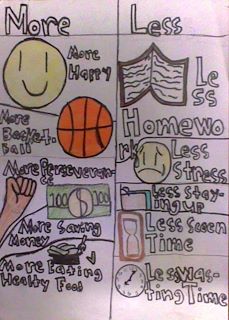 More
More
Happy
More
Basket-
Ball
More Perseveran-
ce
100 100
More Saving
Money
More Eating
Healty Food
Less
Le
ss
Homewo
rk
Less
Stress
Less Stay-
ing up
Less Screen
Time
Less Was-
ting Time